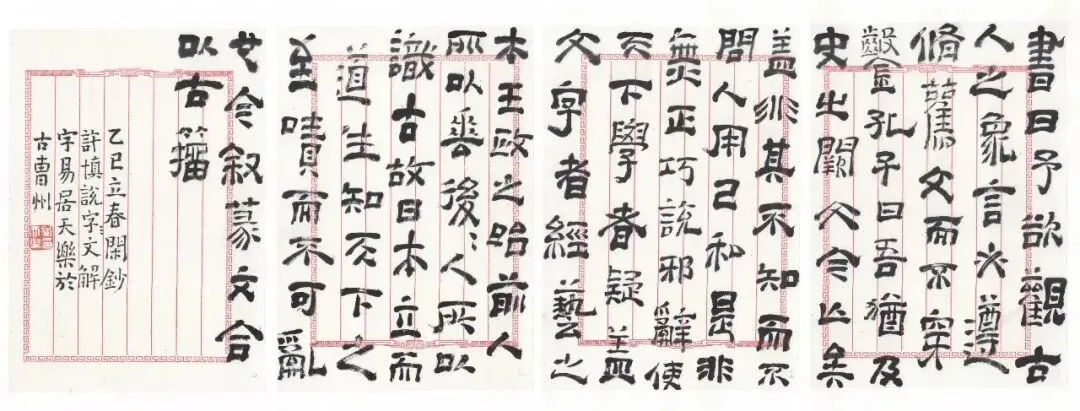 書曰予欲觀古
人之象言必遵
脩舊文而不穿
鑿孔子曰吾猶及
史之闕文今亡矣
蓋非其不知而不
問人用己私是非
無正巧説邪辭使
天下學者疑蓋
文字者經藝之
本王政之始前人
所以垂後〻人所以
識古故曰本立而
道生知天下之
至嘖而不可亂
也今叙篆文合
以古籀
乙巳立春閑鈔
許慎説字文解
字易居天樂於
古曹州